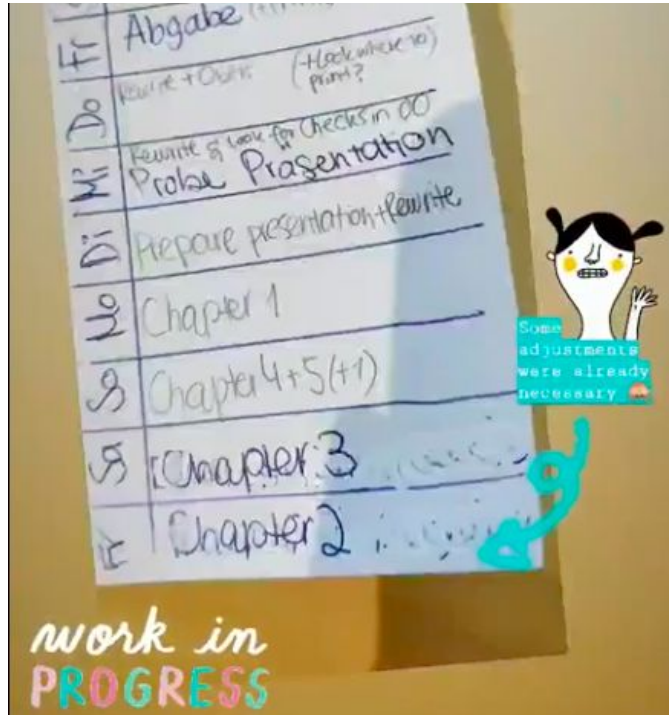 Fr Abgabe
Do Rewrite + (+Look where to
print?
Rewrite & Look for Checks in OO
Mi Probe Präsentation
Di Prepare presentation + Rewrite
Mo Chapter 1
S Chapter 4 + 5 (+1)
S Chapter 3
Fr Chapter 2
Some
adjustments
were already
necessary
work in
PROGRESS